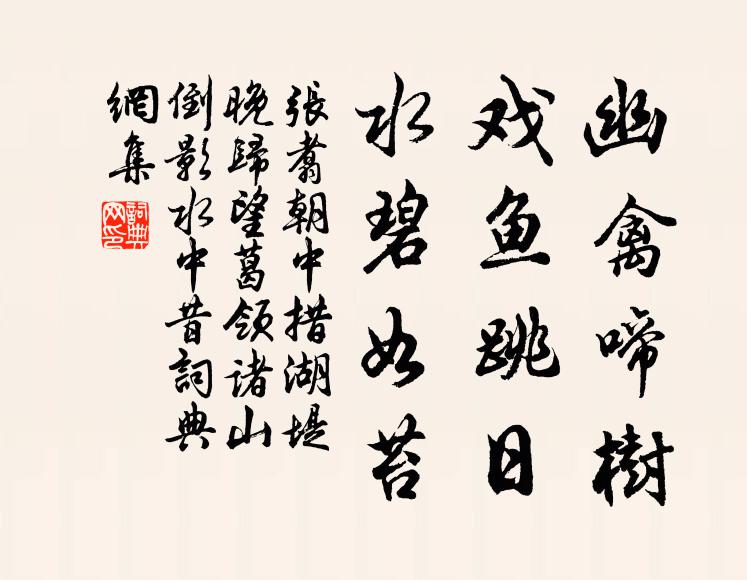 幽禽啼樹
戏鱼跳日
水碧如苔
張翥朝中措湖堤
晚歸望葛領诸山
倒影水中昔詞典
網集
詞典网印